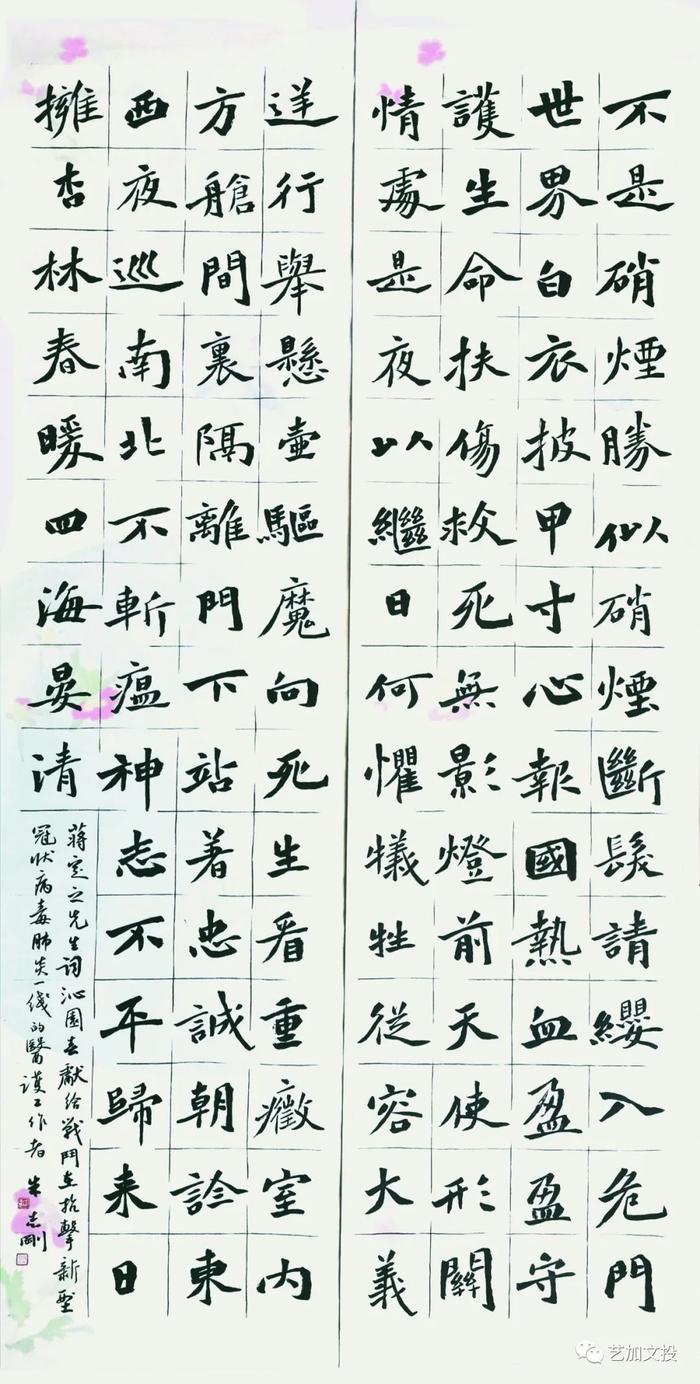 不是硝煙勝似硝煙斷髮請纓入危門
世界白衣披甲寸心報國熱血盈盈守
護生命扶傷救死無影燈前天使形關
情處是夜以繼日何懼犧牲從容大義
逆行舉懸壺驅魔向死生看重癥室内
方艙間裏隔離門下站著忠誠朝診東
西夜巡南北不斬瘟神志不平歸来日
擁杏林春暖四海晏清
蔣定之先生詞沁園春獻給戰鬥在抗擊新型
冠狀病毒肺炎一綫的醫護工作者 朱志剛
艺加文投